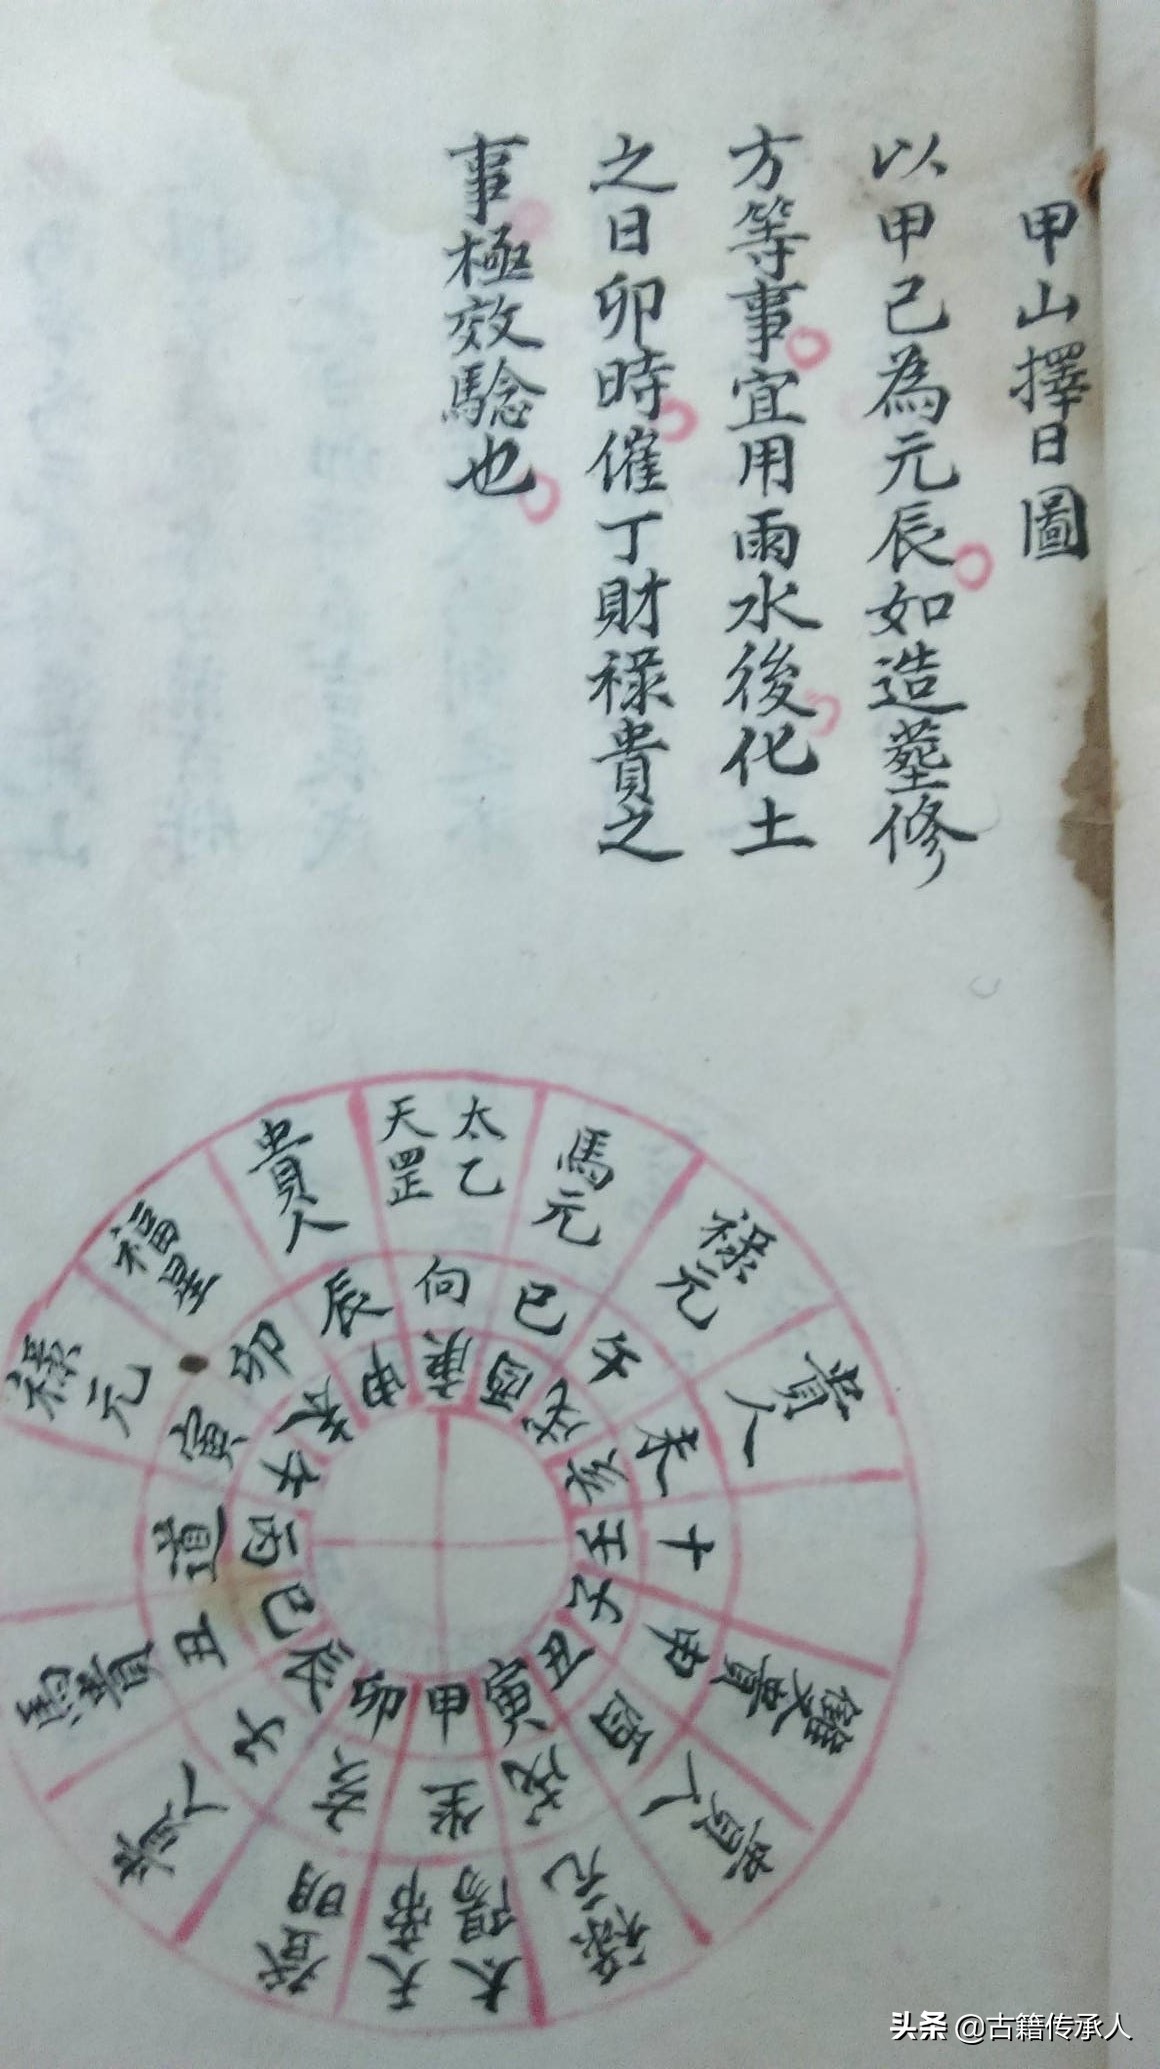 甲山擇日圖
以甲己為元辰如造塟修
方等事宜用雨水後化土
之日卯時催丁財祿貴之
事極效驗也
天罡
太乙
馬元
祿元
貴人
貴人
祿元
太陽
天帝
登明
貴人
祿元
福星
貴人
向
巳
午
未
十
申
酉
戌
坐
亥
子
丑
道
寅
卯
辰
庚
酉
戌
亥
壬
子
丑
寅
甲
卯
辰
巳
丙
午
未
申
头条 @古籍传承人